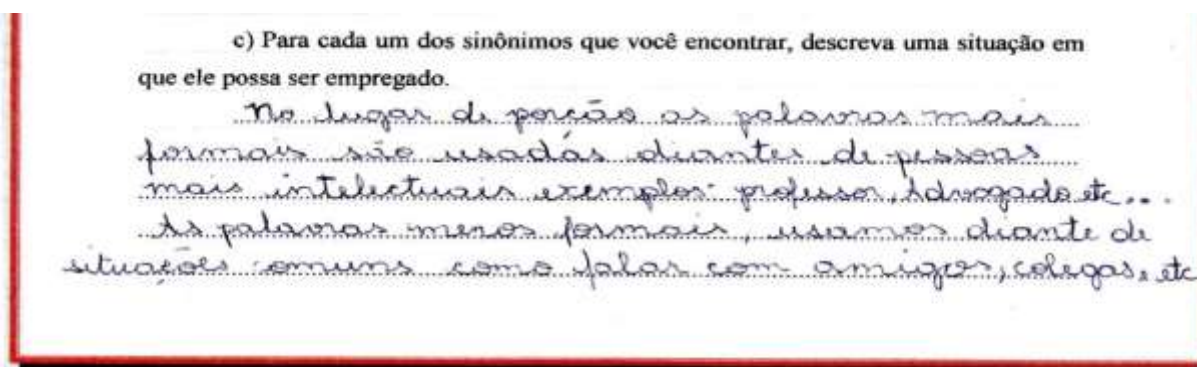 c) Para cada um dos sinônimos que você encontrar, descreva uma situação em
que ele possa ser empregado.
No lugar de porção as palavras mais
formais são usadas diantes de pessoas
mais intelectuais exemplos: professor, Advogado etc...
As palavras menos formais, usamos diante de
situações comuns como falar com amigos, colegas, etc